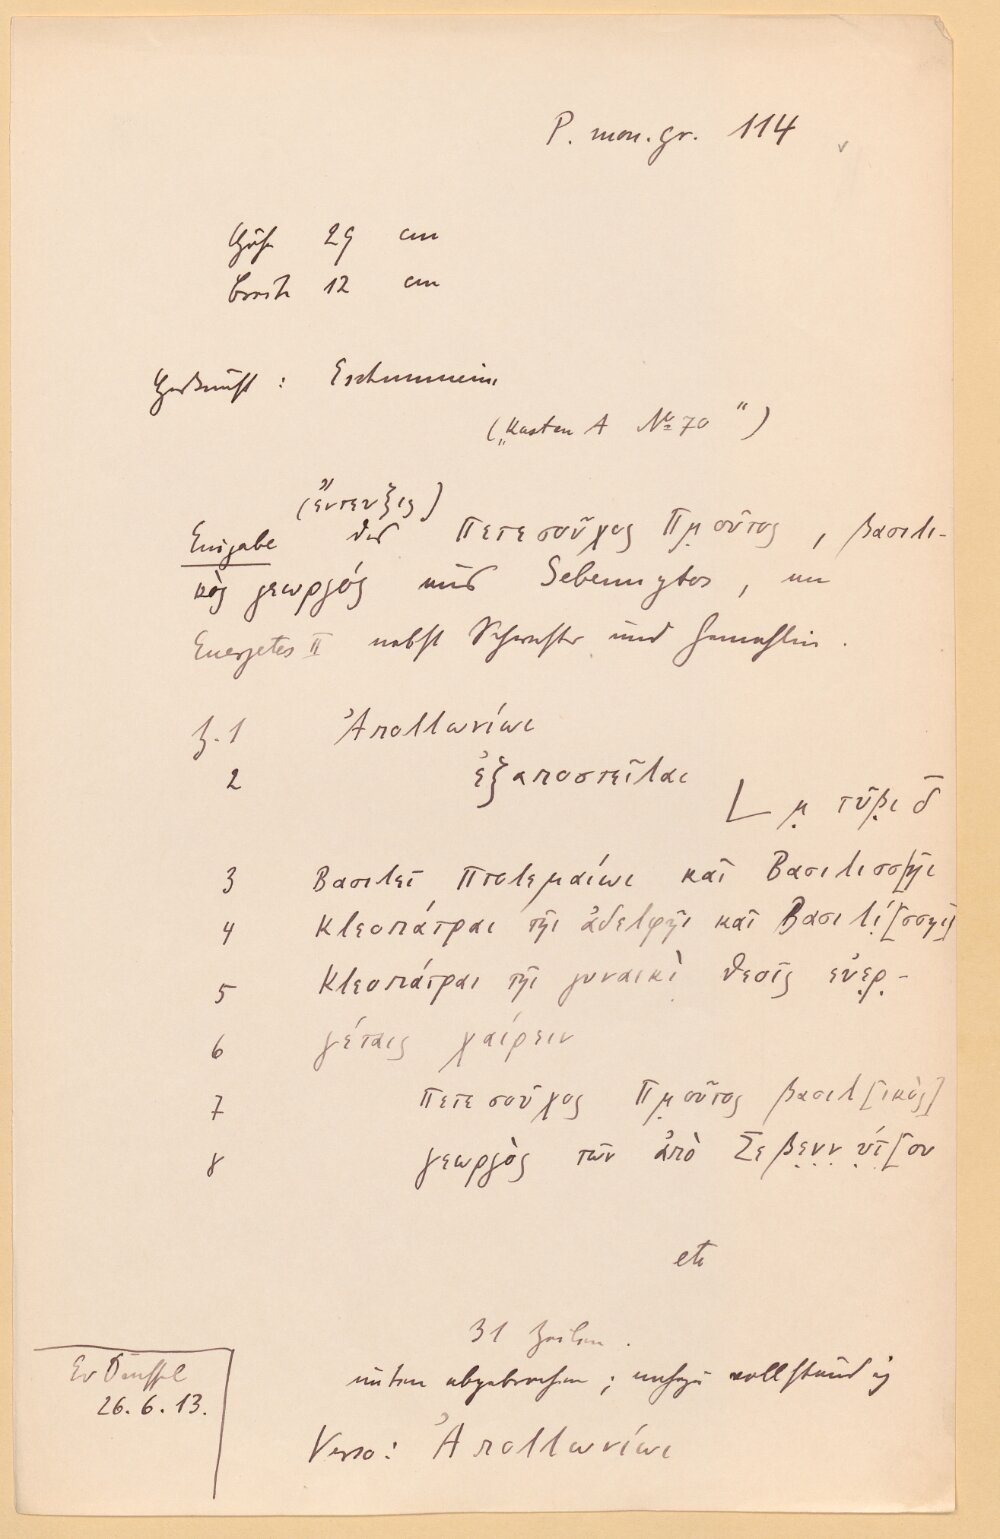 P. mon. gr. 114
Höhe 29 cm
Breite 12 cm
Herkunft : Eschmunein
(„Kasten A № 70")
(ἔντευξις)
Eingabe des Πετεσοῦχος Πμ̣οῦτος, βασιλι-
κὸς γεωργός aus Sebennytos, an
Euergetes II nebst Schwester und Gemahlin.
Z. 1 Ἀπολλωνίωι
2 ἐξαποστεῖλαι
L μ̣ τῦβ̣ι δ̄
3 Βασιλεῖ Πτολεμαίωι καὶ Βασιλίσσ[ηι
4 Κλεοπάτραι τῆι ἀδελφῆι καὶ Βασιλί̣[σσηι]
5 Κλεοπάτραι τῆι γυναικὶ θεοῖς εὐε̣ρ̣-
6 γέταις χαίρειν
7 Πετεσοῦχος Πμ̣οῦτος βασιλ[ικὸς]
8 γεωργὸς τῶν ἀπὸ Σεβ̣ε̣ν̣ν̣ύ̣τ̣[ου
etc
31 Zeilen.
unten abgebrochen; nahezu vollständig
Verso: Ἀπολλωνίωι
26.6.13.